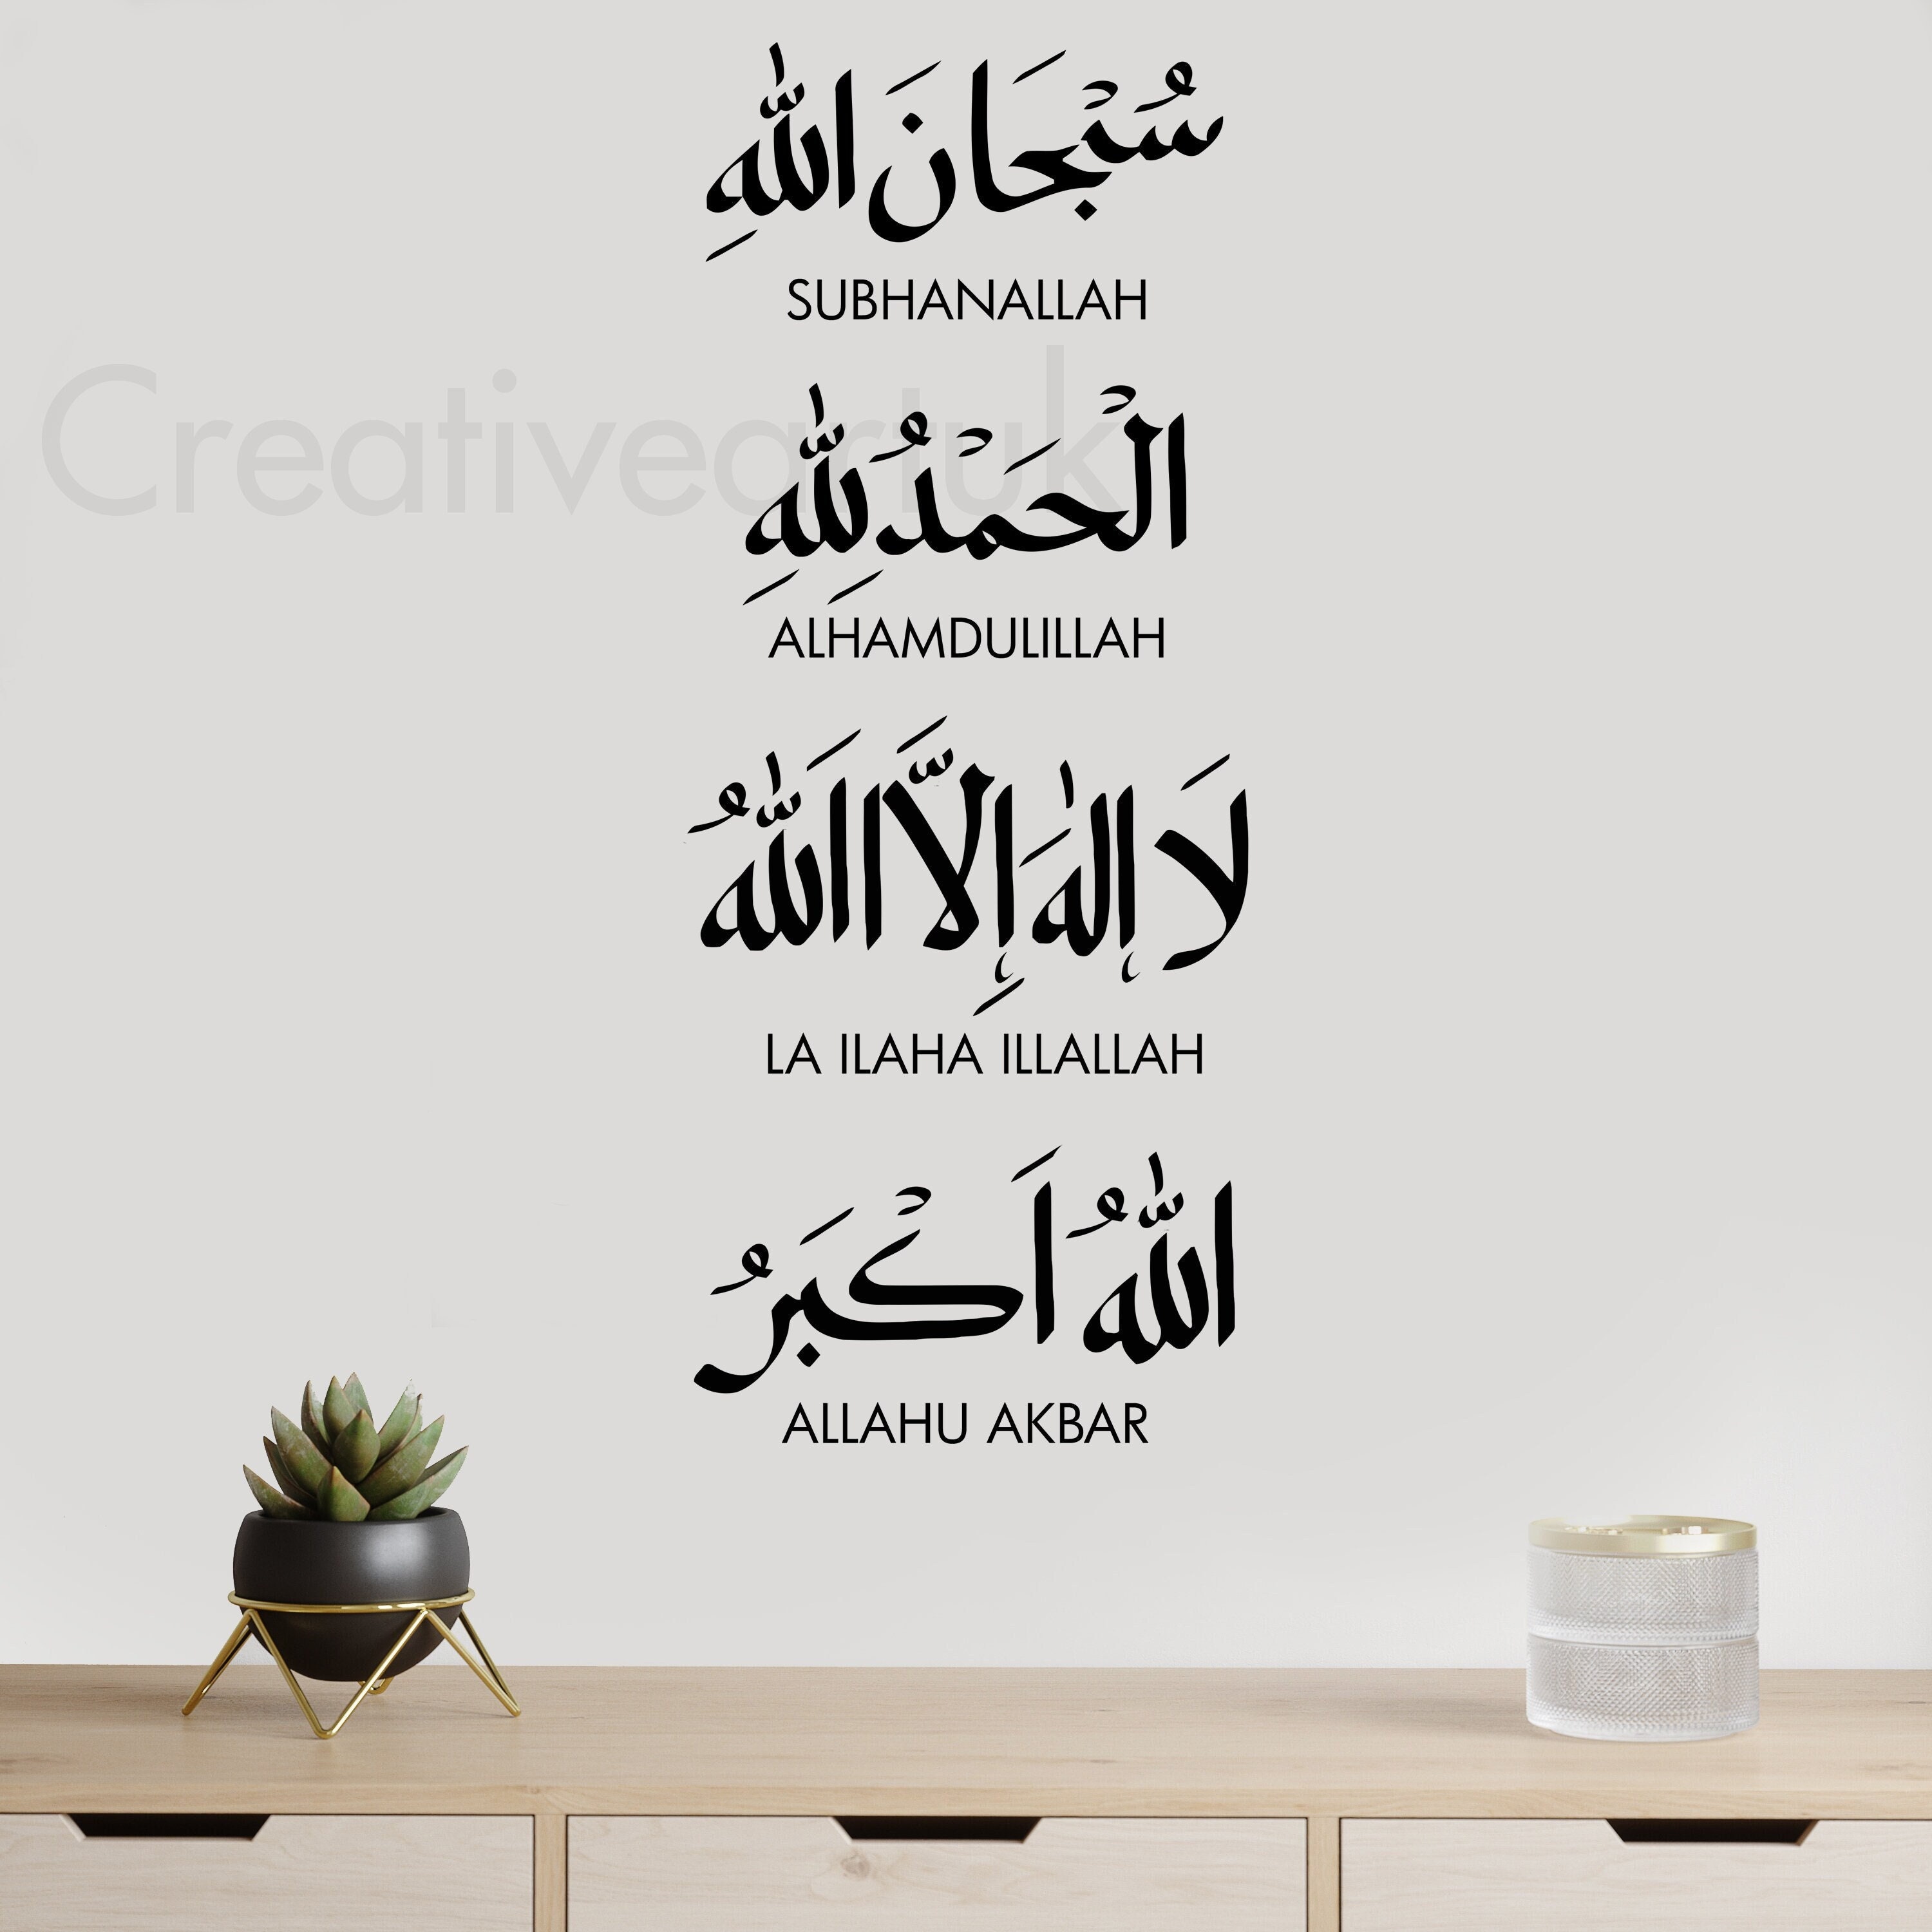 سُبْحَانَ اللّٰهِ
SUBHANALLAH
Creativeartuk
الْحَمْدُ لِلّٰهِ
ALHAMDULILLAH
لَا إلٰهَ إِلَّا اَللّٰهُ
LA ILAHA ILLALLAH
اللّٰهُ اَكْبَرُ
ALLAHU AKBAR